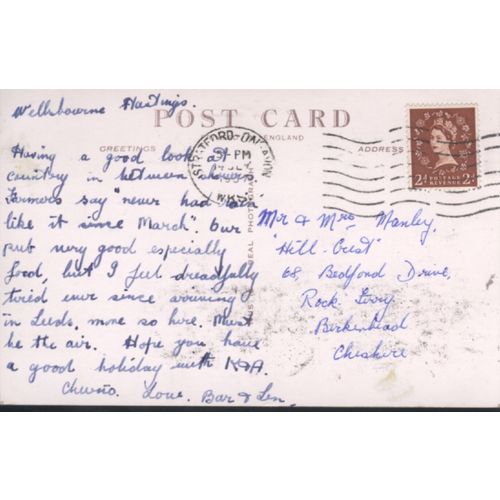 Wellsbourne Hastings.
POST CARD
GREETINGS
ENGLAND
ADDRESS
STRATFORD-ON-AVON
PM
2d POSTAGE REVENUE 2d
REAL PHOTOGRAPH
Having a good look at
country in between showers
Farmers say "never had
like it since March". Our
pub very good especially
food, but I feel dreadfully
tired ever since arriving
in Leeds, more so here. Must
be the air. Hope you have
a good holiday with
Cheerio. Love, Bar & Len
Mr & Mrs Manley,
"Hill-Crest"
68, Bedford Drive,
Rock Ferry
Birkenhead
Cheshire